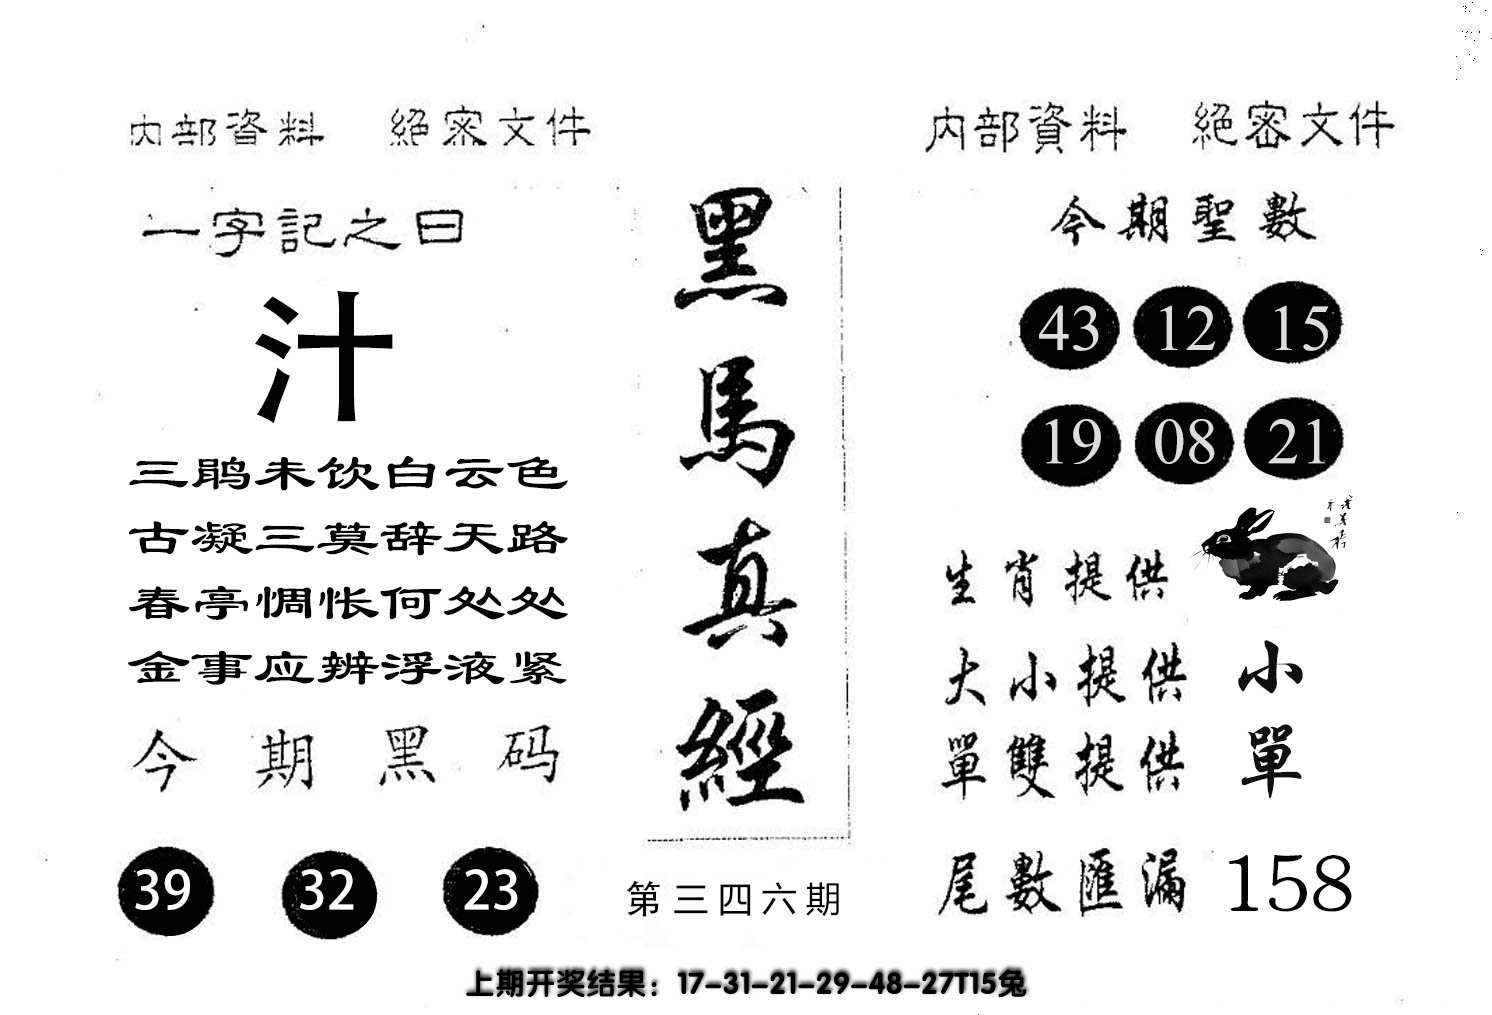 内部資料 絕密文件
一字記之曰
汁
三鹃未饮白云色
古凝三莫辞天路
春亭惆怅何处处
金事应辨浮液紧
今期黑码
39 32 23
黑馬真經
第三四六期
内部資料 絕密文件
今期聖數
43 12 15
19 08 21
生肖提供
大小提供 小
單雙提供 單
尾數匯漏 158
上期开奖结果：17-31-21-29-48-27T15兔